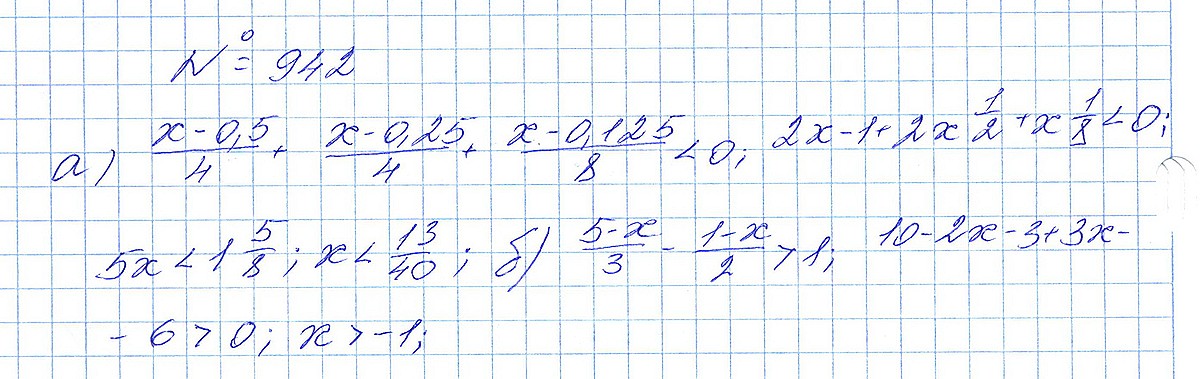 № = 942
а) (x-0,5)/4 + (x-0,25)/4 + (x-0,125)/8 < 0; 2x-1+2x 1/2 + x 1/8 < 0;
5x < 1 5/8; x < 13/40; б) (5-x)/3 - (1-x)/2 > 1; 10-2x-3+3x-
- 6 > 0; x > -1;